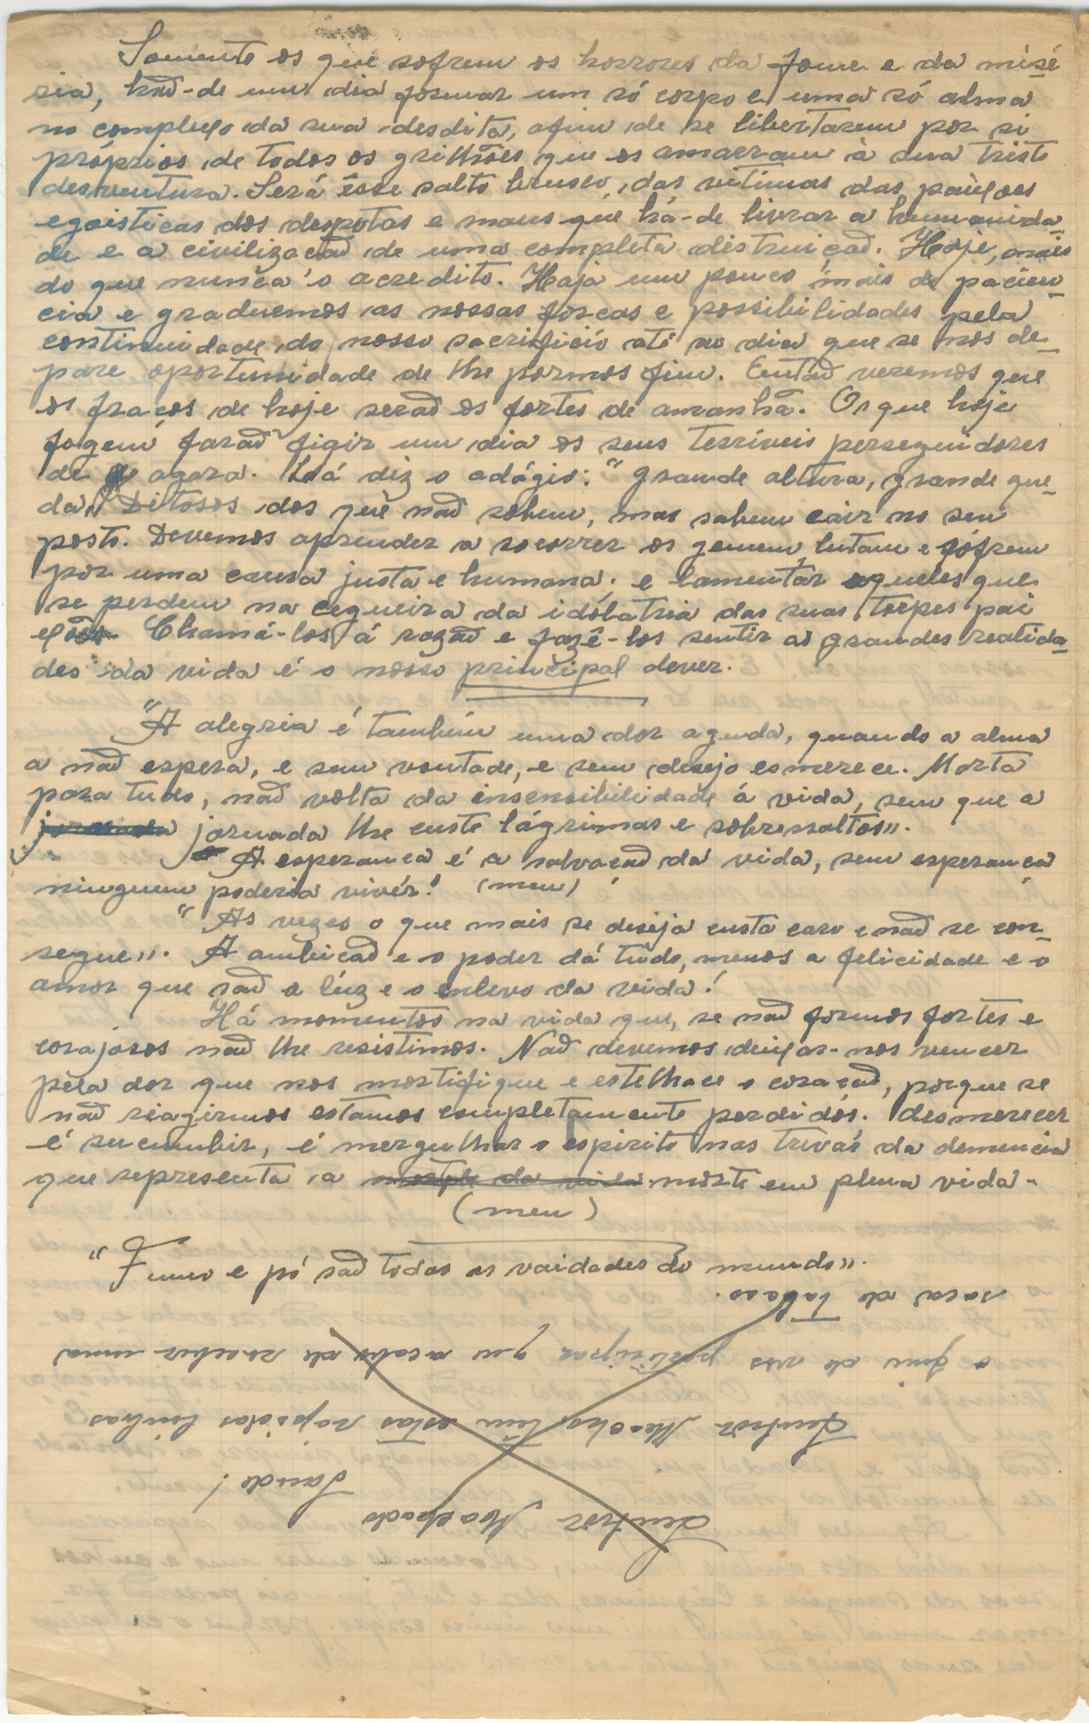 Somente os que sofrem os horrores da fome e da misé
ria, hão-de um dia formar um só corpo e uma só alma
no complexo da sua desdita, afim de se libertarem por si
próprios de todos os grilhões que os amarram à sua triste
desventura. Será êsse salto brusco, das vitimas das paixões
egoisticas dos despotas e maus que há-de livrar a humanida-
de e a civilizacão de uma completa distruicão. Hoje, mais
do que nunca o acredito. Haja um pouco mais de pacien-
cia e graduemos as nossas forcas e possibilidades pela
continuidade do nosso sacrificio até ao dia que se nos de-
pare oportunidade de lhe pormos fim. Então veremos que
os fracos de hoje serão os fortes de amanhã. Os que hoje
fogem, farão figir um dia os seus terríveis perseguidores
de agora. Lá diz o adágio: "grande altura, grande que-
da". Ditosos dos que não sobem, mas sabem cair no seu
posto. Devemos aprender a socorrer os gemem, lutam e sófrem
por uma causa justa e humana, e lamentar aqueles que
se perdem na cegueira da idólatria das suas torpes pai
xões Chamá-los á razão e fazê-los sentir as grandes realida-
des da vida é o nosso principal dever.
"A alegria é tambêm uma dor aguda, quando a alma
a não espera, e sem vontade, e sem desejo esmerece. Morta
para tudo, não volta da insensibilidade á vida, sem que a
jornada jornada lhe custe lágrimas e sobressaltos».
A esperanca é a salvacão da vida, sem esperanca
ninguem poderia vivêr! (meu)
"As vezes o que mais se deseja custa caro e não se con-
segue». A ambicão e o poder dá tudo, menos a felicidade e o
amor que são a lúz e o enlevo da vida!
Há momentos na vida que, se não formos fortes e
corajosos não lhe resistimos. Não devemos deixar-nos vencer
pela dor que nos mortifique e estelhace o coracão, porque se
não riagirmos estamos completamente perdidos. desmerecer
é sucumbir, é mergulhar o espirito nas trivas da demencia
que representa a morte da vida morte em plena vida.
(meu)
"Fumo e pó são todas as vaidades do mundo».
saca do tabaco.
o fim de vos participar qu acabo de receber uma
Senhor Machado têm estas rapidas linhas
Saude!
Senhor Machado